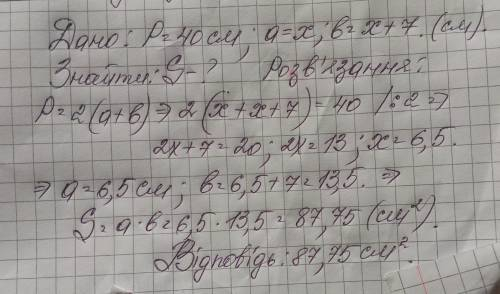 Дано: P=40см; a=x; b=x+7. (см).
Знайти: S-? Розв'язання:
P=2(a+b)⇒2(x+x+7)=40 /:2 ⇒
2x+7=20; 2x=13; x=6,5.
⇒ a=6,5см; b=6,5+7=13,5. ⇒
S=a·b=6,5·13,5=87,75 (см²).
Відповідь: 87,75 см².